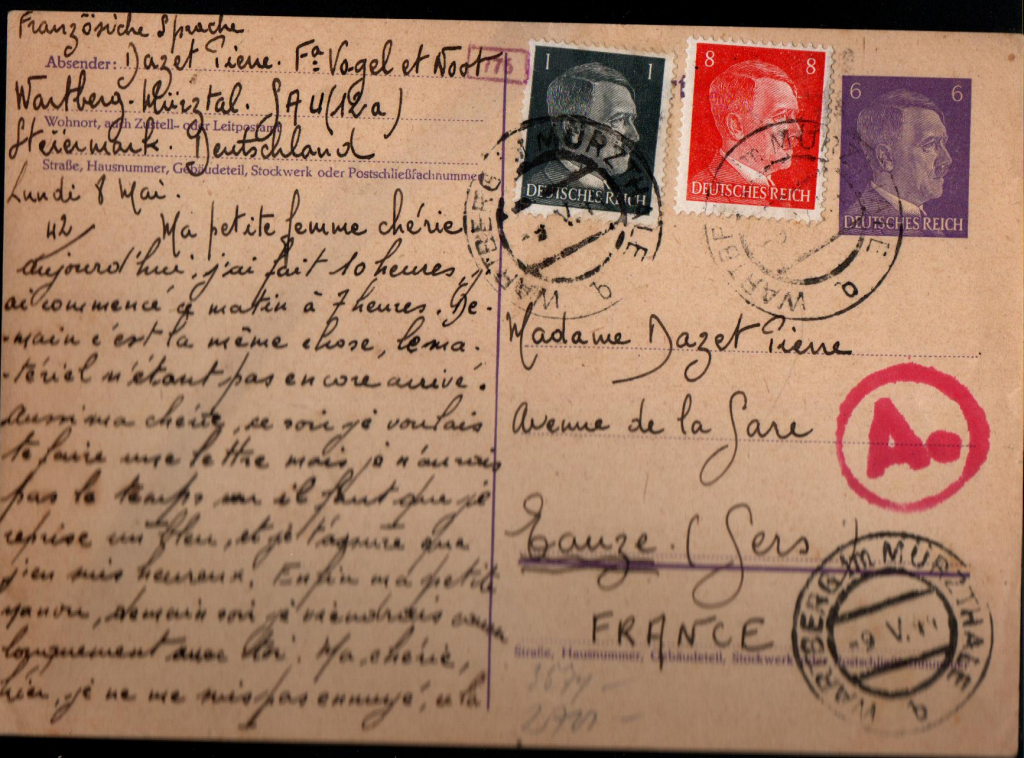 Französiche Sprache
Absender: Dazet Pierre. Fa Vogel et Noot
Wartberg. Mürztal. GAU (12a)
Wohnort, auch Zustell- oder Leitpostamt
Steiermark. Deutschland
Straße, Hausnummer, Gebäudeteil, Stockwerk oder Postschließfachnummer
Lundi 8 Mai.
42 Ma petite femme chérie
aujourd'hui, j'ai fait 10 heures, j'
ai commencé ce matin à 7 heures. De-
-main c'est la même chose, le ma-
-tériel n'étant pas encore arrivé.
Aussi ma chérie, ce soir je voulais
te faire une lettre mais je n'aurais
pas le temps car il faut que je
reprise un bleu, et je t'assure que
j'en suis heureux. Enfin ma petite
demain soir je viendrais causer
longuement avec toi. Ma chérie,
hier, je ne me suis pas ennuyé, à la
775
1 1
DEUTSCHES REICH
8 8
DEUTSCHES REICH
6 6
DEUTSCHES REICH
WARTBERG im MÜRZTHALE
q
WARTBERG im MÜRZTHALE
q
Madame Dazet Pierre
Avenue de la Gare
A.
Eauze. (Gers)
FRANCE
Straße, Hausnummer, Gebäudeteil, Stockwerk oder Postschließfachnummer
WARTBERG im MÜRZTHALE
-9.V.44
q